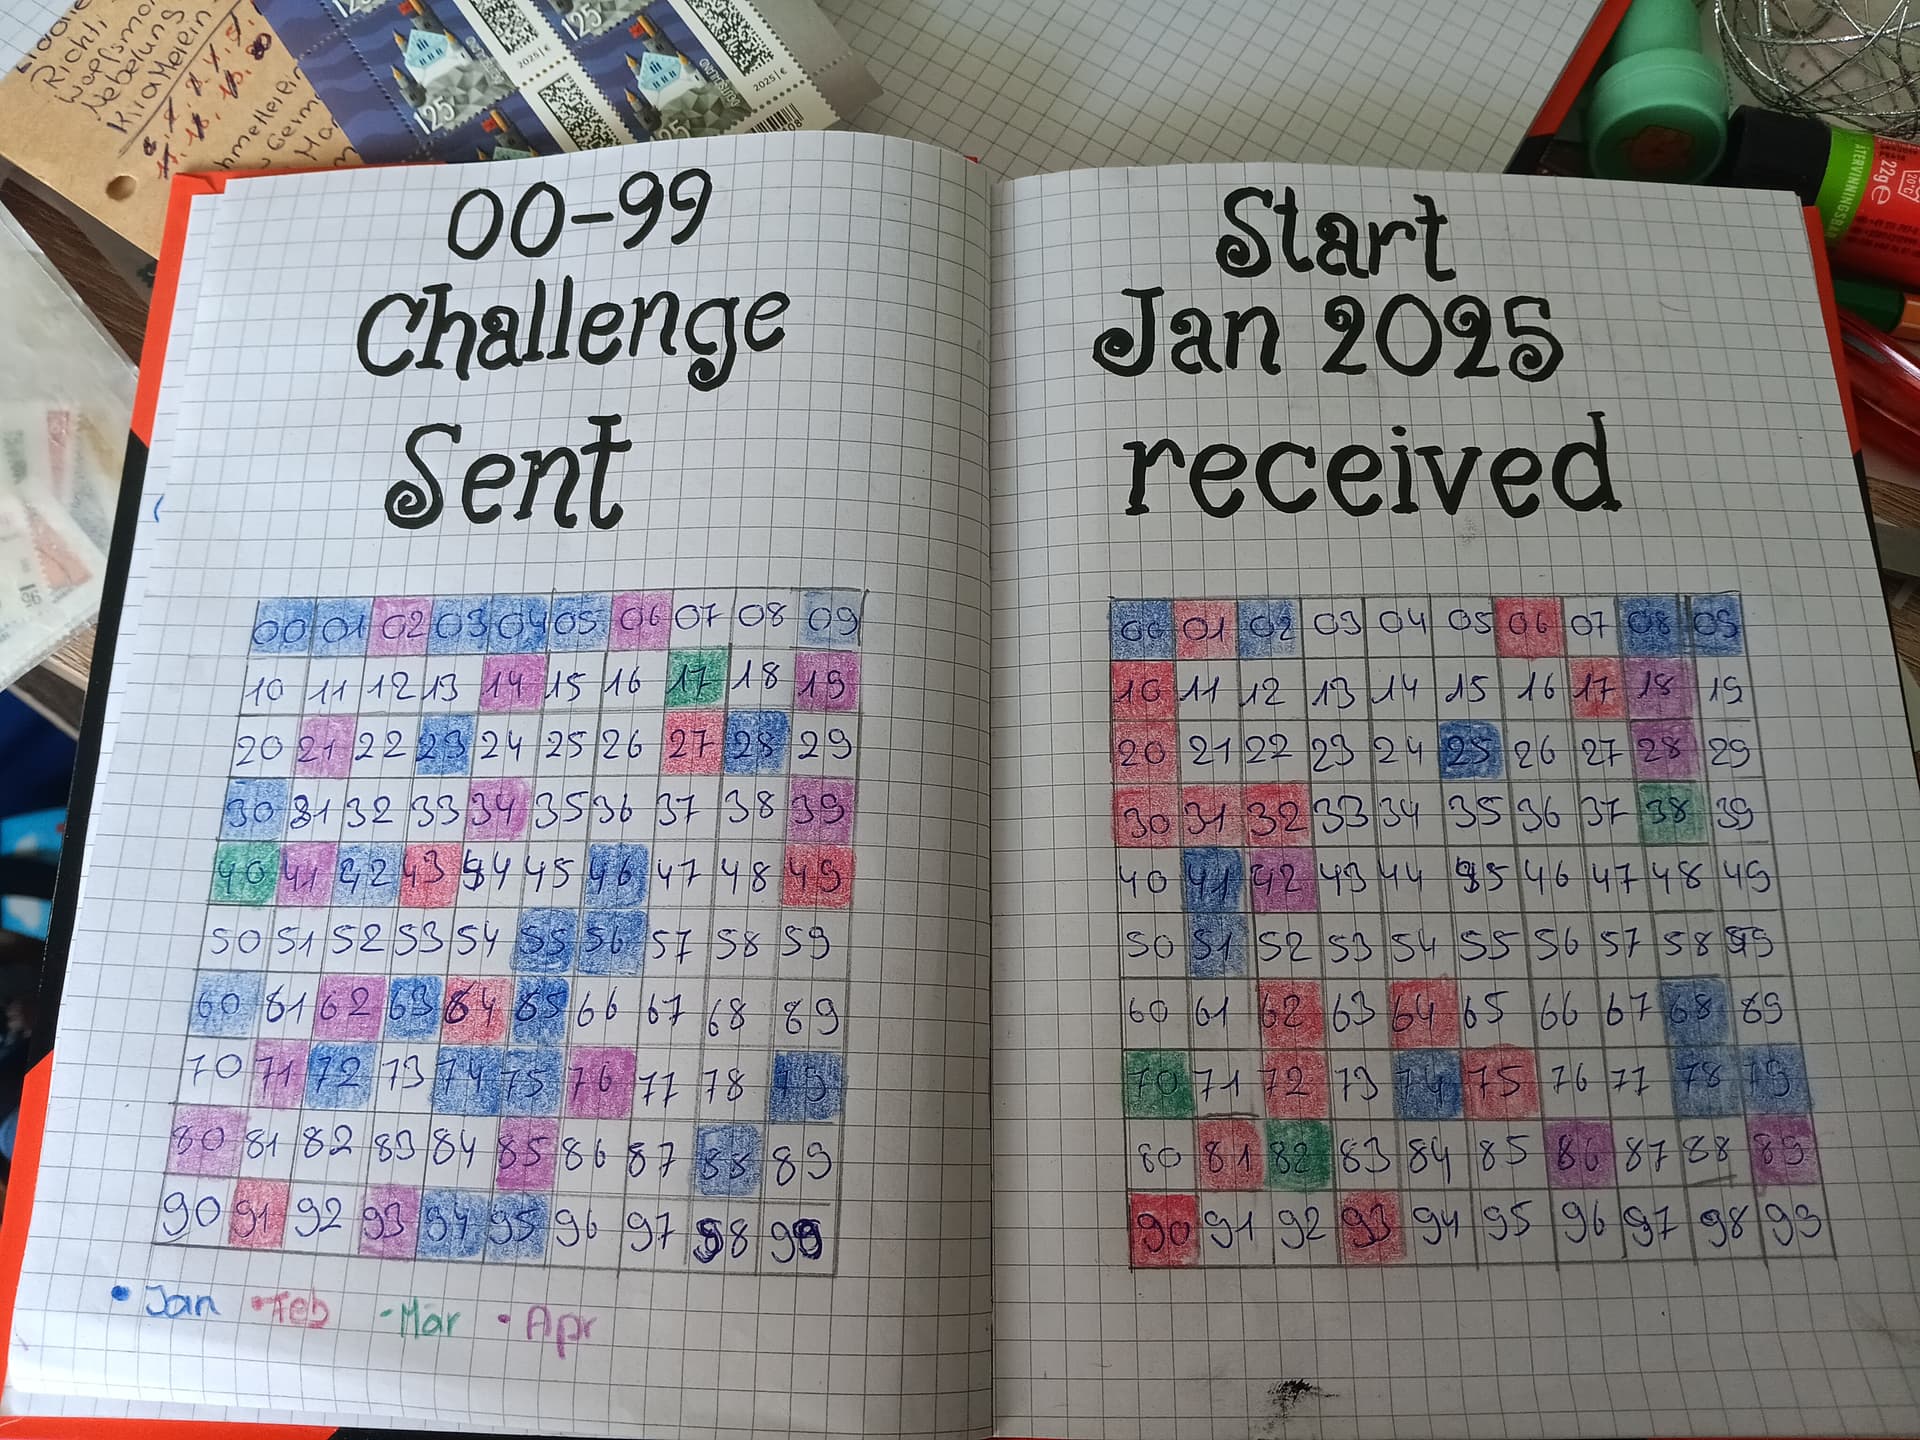 Richt
Nebelung
125
2025 | €
2025 | €
ÅTERVINNINGSBAR
22g e
20°C
95
00-99
Challenge
Sent
00 01 02 03 04 05 06 07 08 09
10 11 12 13 14 15 16 17 18 19
20 21 22 23 24 25 26 27 28 29
30 31 32 33 34 35 36 37 38 39
40 41 42 43 44 45 46 47 48 49
50 51 52 53 54 55 56 57 58 59
60 61 62 63 64 65 66 67 68 69
70 71 72 73 74 75 76 77 78 79
80 81 82 83 84 85 86 87 88 89
90 91 92 93 94 95 96 97 98 99
• Jan • Feb - Mär • Apr
Start
Jan 2025
received
00 01 02 03 04 05 06 07 08 09
10 11 12 13 14 15 16 17 18 19
20 21 22 23 24 25 26 27 28 29
30 31 32 33 34 35 36 37 38 39
40 41 42 43 44 45 46 47 48 49
50 51 52 53 54 55 56 57 58 59
60 61 62 63 64 65 66 67 68 69
70 71 72 73 74 75 76 77 78 79
80 81 82 83 84 85 86 87 88 89
90 91 92 93 94 95 96 97 98 99